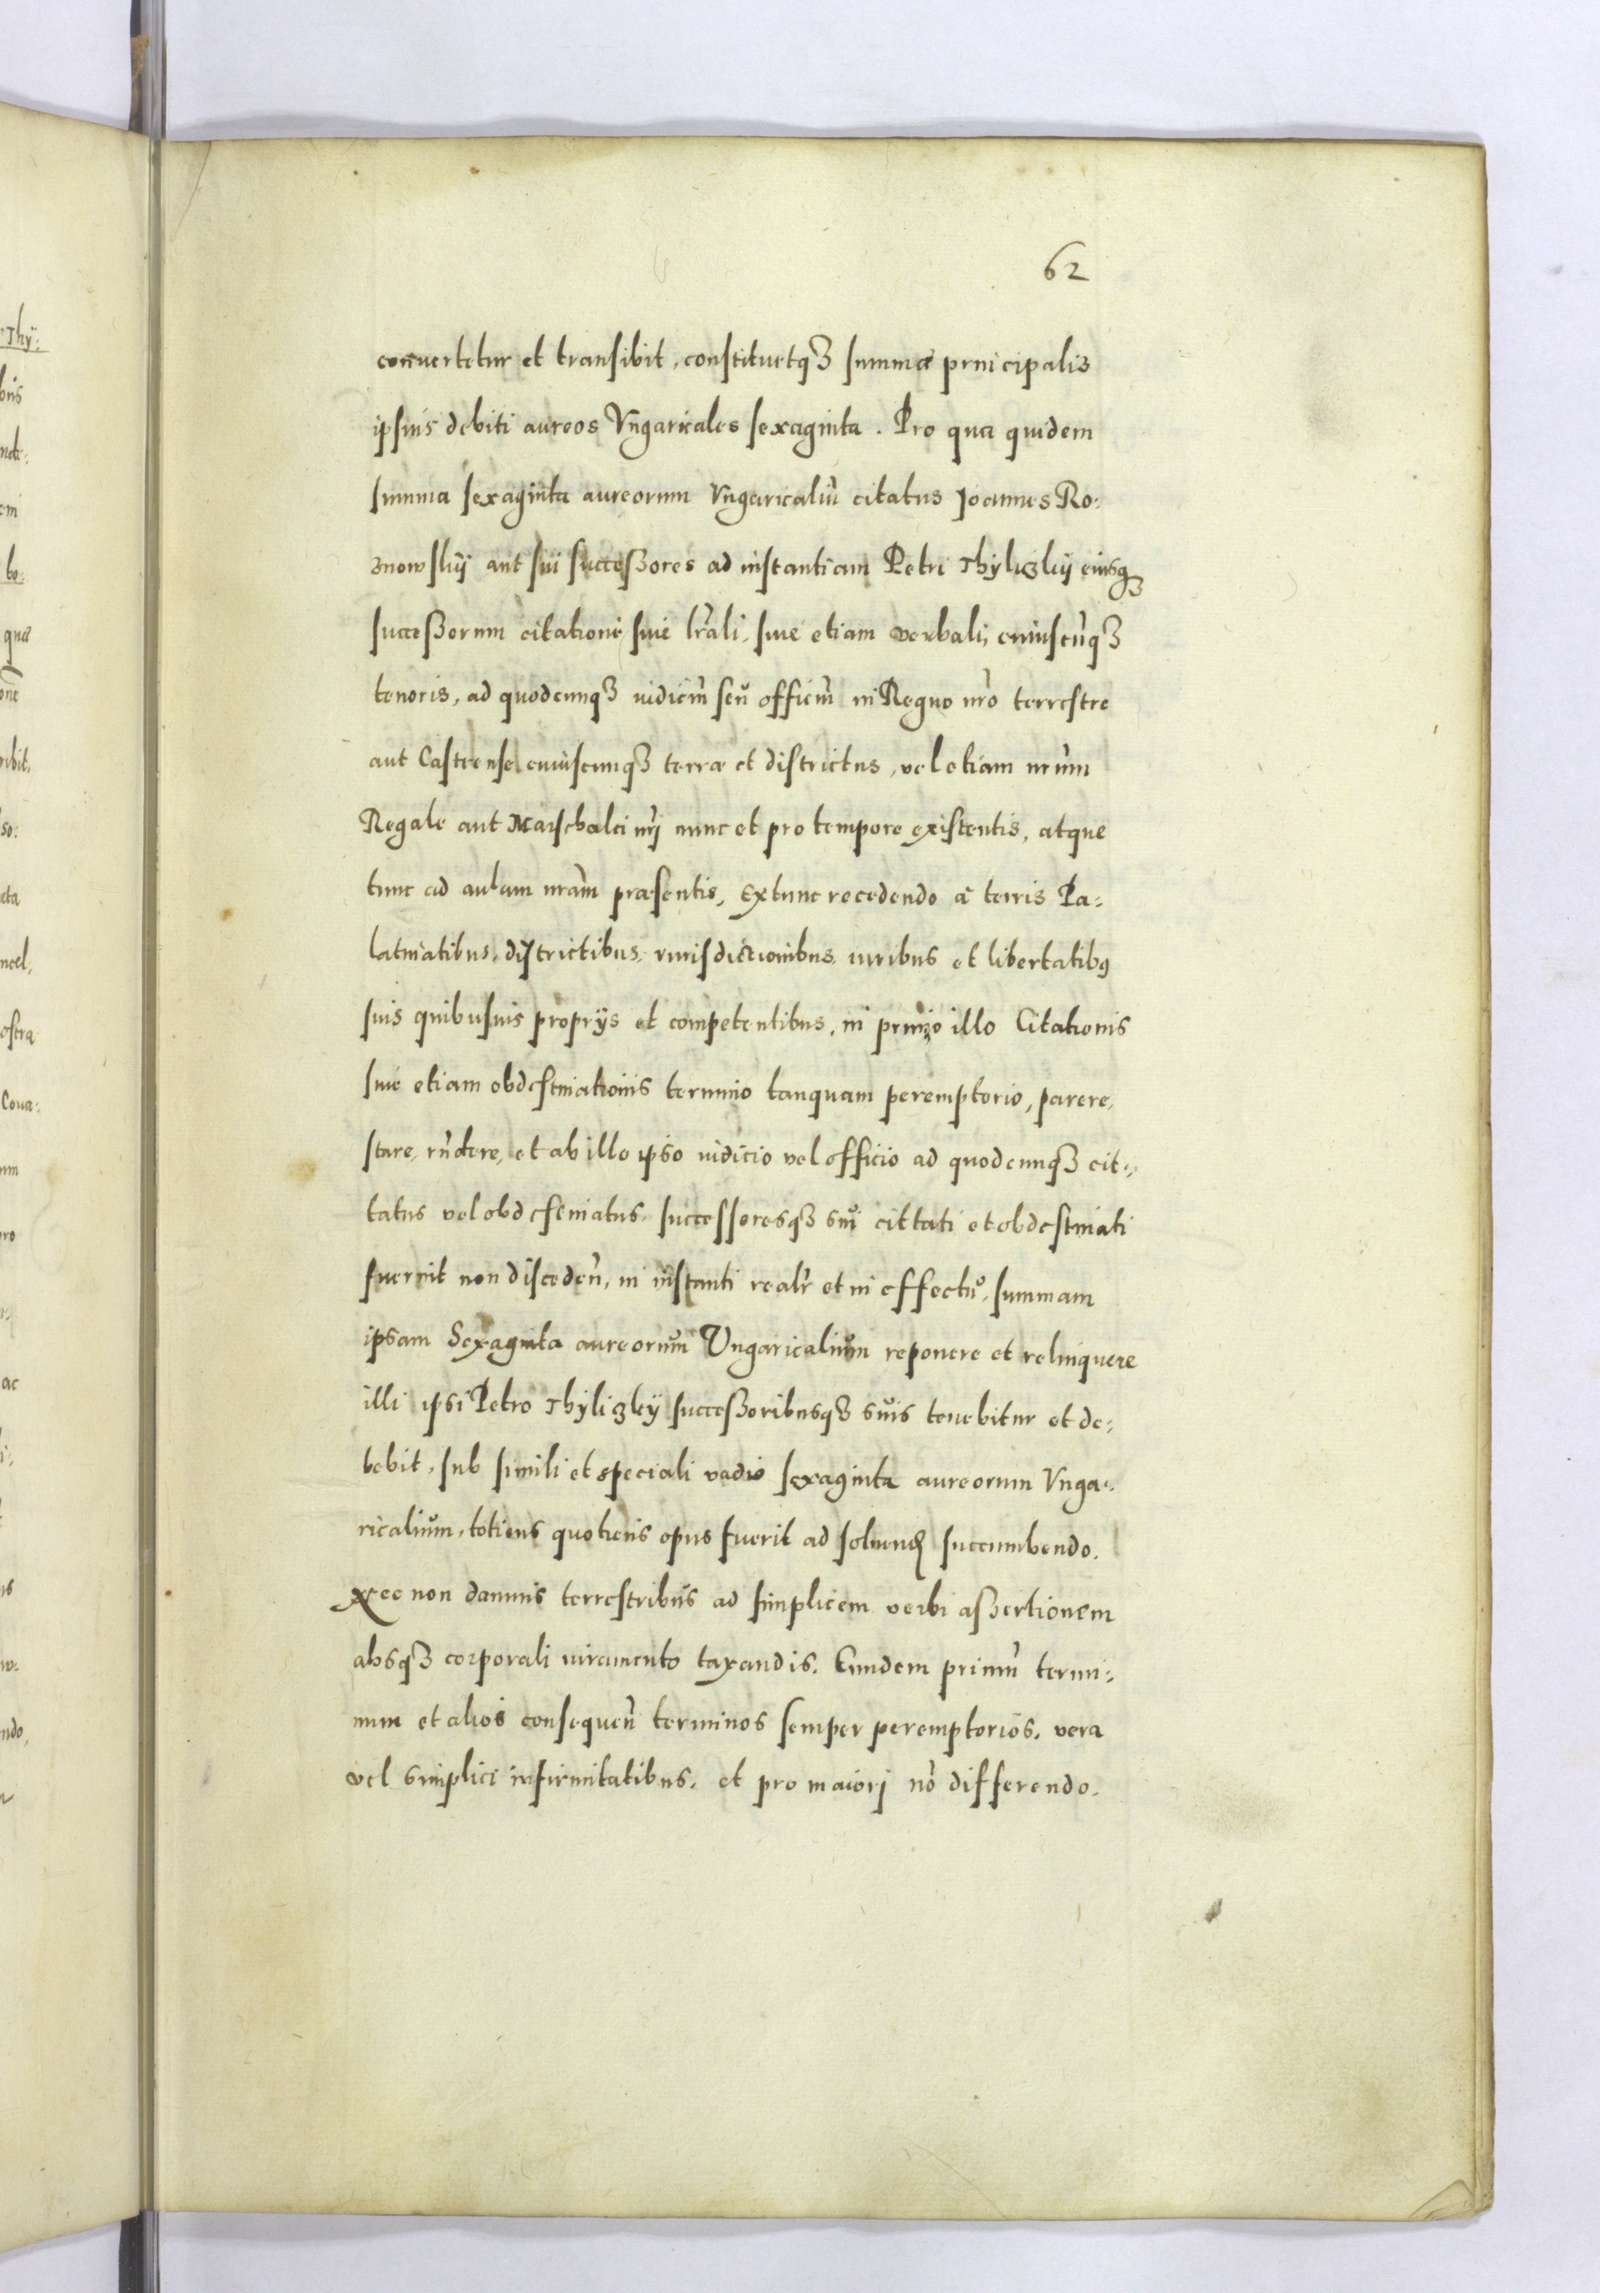 62
conuertetur et transibit, constituetqȝ summa principalis
ipsius debiti aureos Vngaricales sexaginta. Pro qua quidem
summa sexaginta aureorum Vngaricaliũ citatus Joannes Ro:
znowskÿ aut sui successores ad instantiam Petri Thyliczkÿ eiusqȝ
successorum citatione siue lr̃ali, siue etiam verbali, cuiuscũqȝ
tenoris, ad quodcunqȝ iudiciũ seu officiũ in Regno nr̃o terrestre
aut Castrense cuiuscunqȝ terræ et districtus, vel etiam nr̃um
Regale aut Marschalci nr̃j nunc et pro tempore existentis, atque
tunc ad aulam nr̃am præsentis, Extunc recedendo à terris Pa:
latinatibus, districtibus, iurisdictionibus, iuribus et libertatibꝰ
suis quibusuis proprÿs et competentibus, in primo illo Citationis
siue etiam obdestinationis termino tanquam peremptorio, parere,
stare, rñdere, et ab illo ipso iudicio vel officio ad quodcunqȝ cit:
tatus vel obdestinatus, successoresqȝ sui cittati et obdestinati
fuerint non disceden̄, in instanti realr̃ et in effectu, summam
ipsam Sexaginta aureorum Vngaricalium reponere et relinquere
illi ipsi Petro Thyliczkÿ successoribusqȝ suis tenebitur et de:
bebit, sub simili et speciali vadio sexaginta aureorum Vnga:
ricalium, totiens quotiens opus fuerit ad soluend̄ succumbendo.
Nec non damnis terrestribus ad simplicem verbi assertionem
absqȝ corporali iuramento taxandis. Eundem primũ termi:
num et alios consequen̄ terminos semper peremptorios, vera
vel simplici infirmitatibus, et pro maiori nõ differendo.